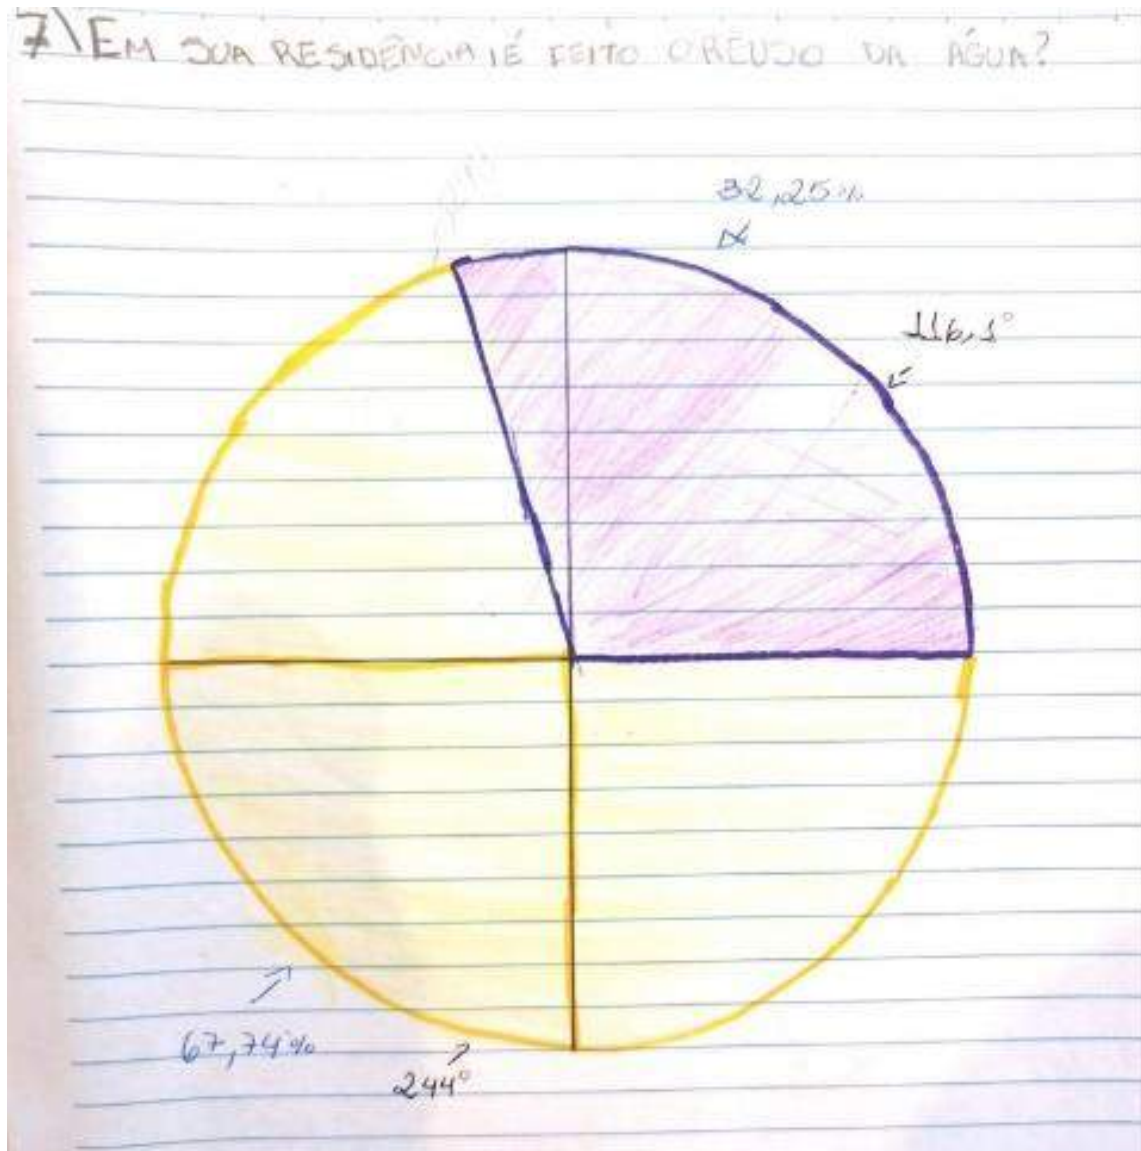 7\ EM SUA RESIDÊNCIA É FEITO O REUSO DA ÁGUA?
32,25%
116,1°
67,74%
244°